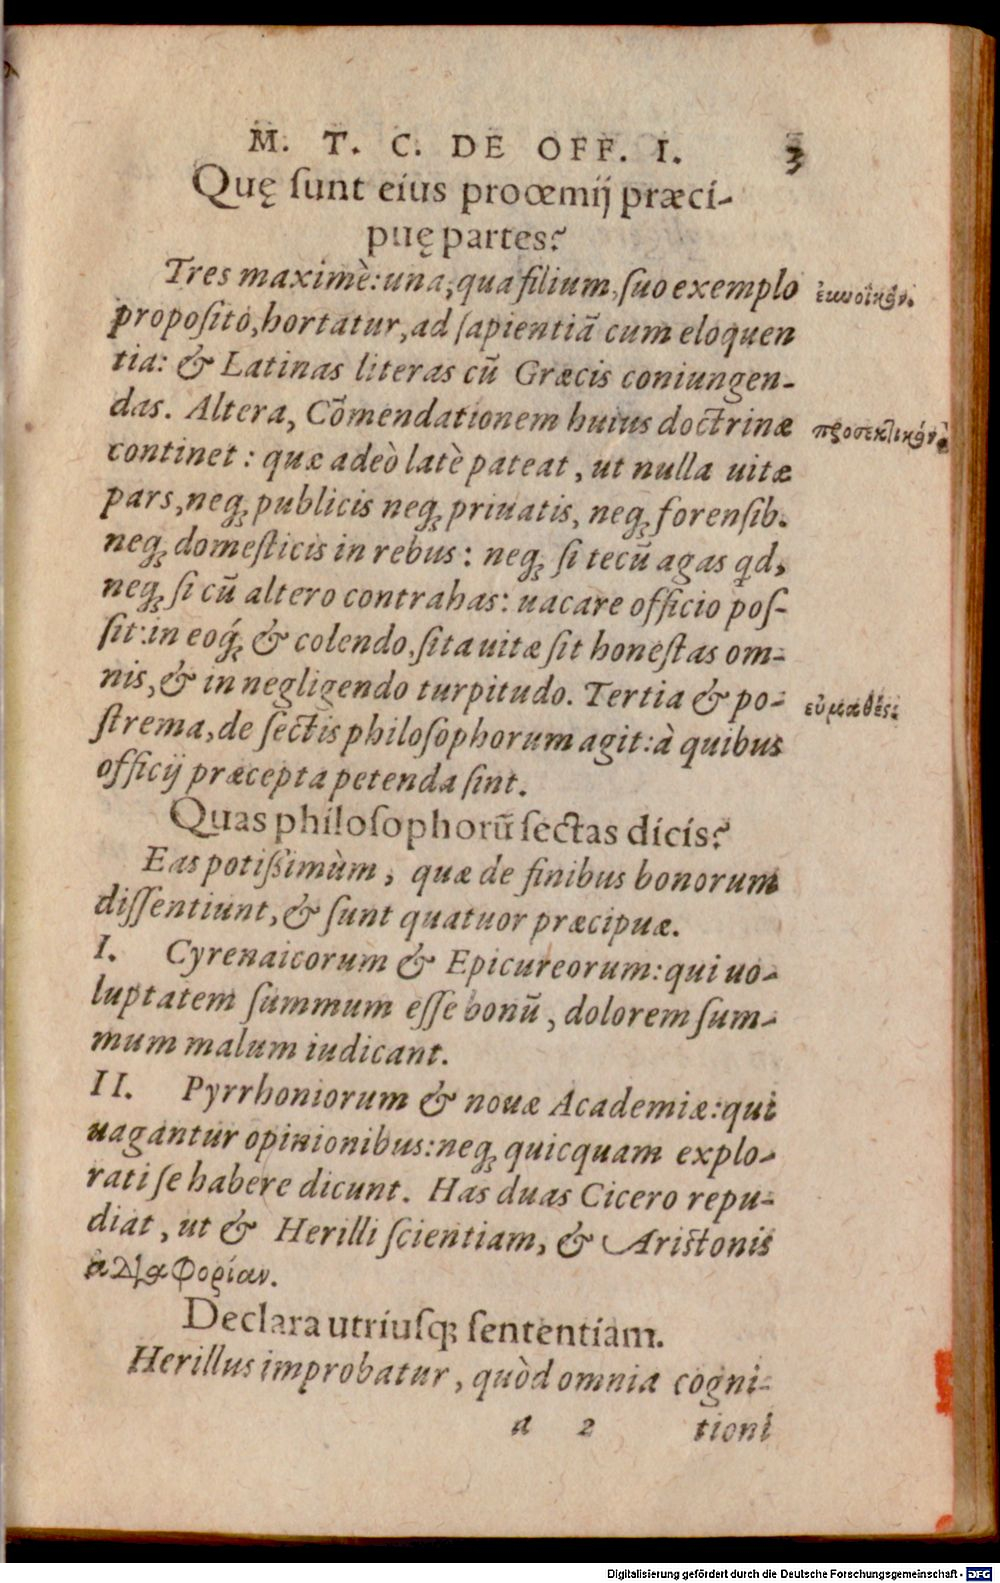 M. T. C. DE OFF. I. 3
Quę ſunt eius procœmij præci-
puę partes?
Tres maximè: una, qua filium, ſuo exemplo
propoſito, hortatur, ad ſapientiã cum eloquen
tia: & Latinas literas cũ Græcis coniungen-
das. Altera, Cõmendationem huius doctrinæ
continet: quæ adeò latè pateat, ut nulla uitæ
pars, neq; publicis neq; priuatis, neq; forenſib.
neq; domeſticis in rebus: neq; ſi tecũ agas qd,
neq; ſi cũ altero contrahas: uacare officio poſ-
ſit: in eoq́; & colendo, ſita uitæ ſit honeſtas om-
nis, & in negligendo turpitudo. Tertia & po-
ſtrema, de ſectis philoſophorum agit: à quibus
officij præcepta petenda ſint.
εὐνοϊκήν.
προσεκτικήν.
εὐμαθές.
Quas philoſophorũ ſectas dicis?
Eas potiſsimùm, quæ de finibus bonorum
diſſentiunt, & ſunt quatuor præcipuæ.
I. Cyrenaicorum & Epicureorum: qui uo-
luptatem ſummum eſſe bonũ, dolorem ſum-
mum malum iudicant.
II. Pyrrhoniorum & nouæ Academiæ: qui
uagantur opinionibus: neq; quicquam explo-
rati ſe habere dicunt. Has duas Cicero repu-
diat, ut & Herilli ſcientiam, & Ariſtonis
ἀδιαφορίαν.
Declara utriuſq; ſententiam.
Herillus improbatur, quòd omnia cogni-
a 2 tioni
Digitalisierung gefördert durch die Deutsche Forschungsgemeinschaft - DFG